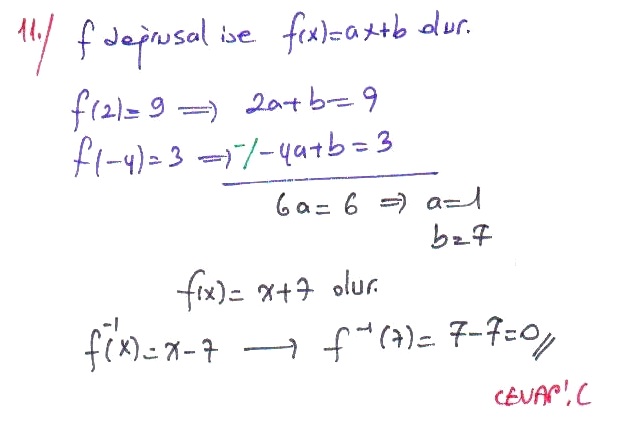 11./ f doğrusal ise f(x)=ax+b olur.
f(2)=9 ⟹ 2a+b=9
f(-4)=3 ⟹ -/-4a+b=3
6a=6 ⟹ a=1
b=7
f(x)=x+7 olur.
f⁻¹(x)=x-7 ⟶ f⁻¹(7)=7-7=0//
CEVAP: C